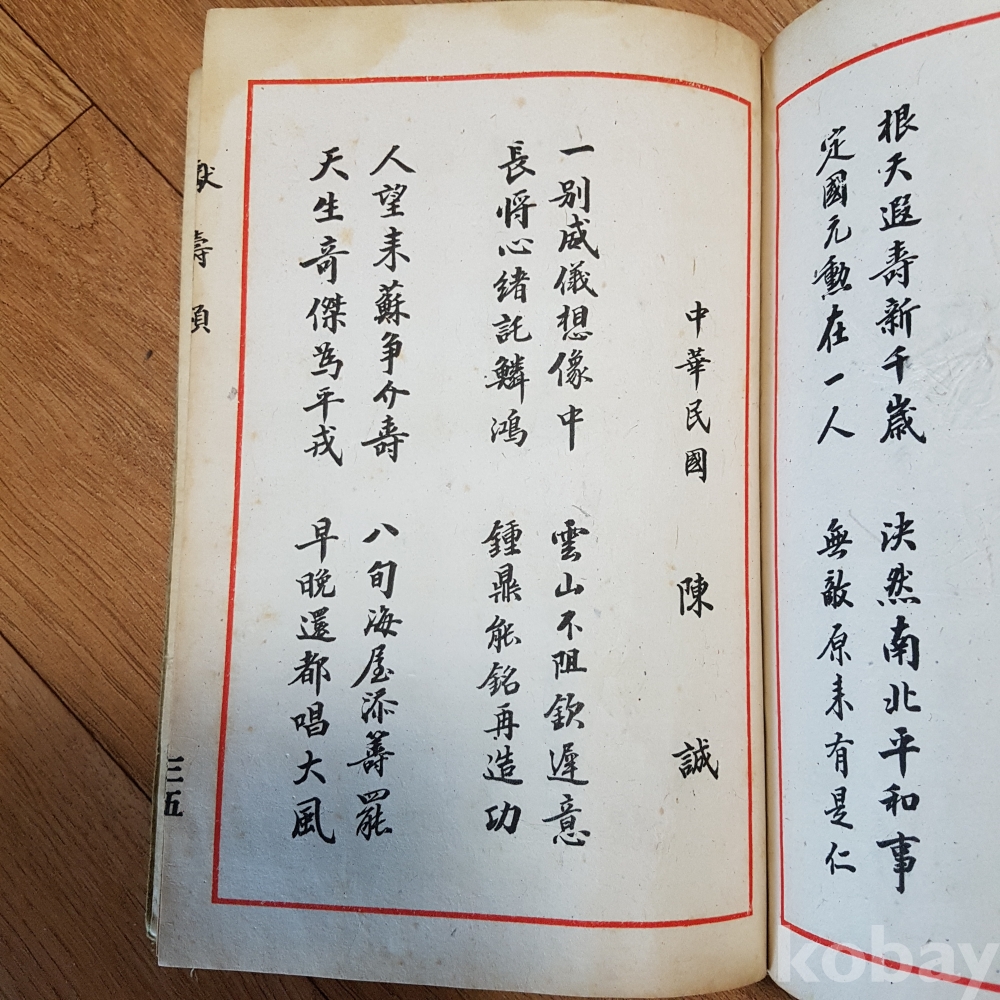 根天遐壽新千歲　決然南北平和事
定國元勳在一人　無敵原来有是仁
中華民國　陳誠
一别威儀想像中　雲山不阻欽遲意
長將心緒託鱗鴻　鍾鼎能銘再造功
人望来蘇爭介壽　八旬海屋添籌罷
天生奇傑為平戎　早晚還都唱大風
壽
三五
kobay